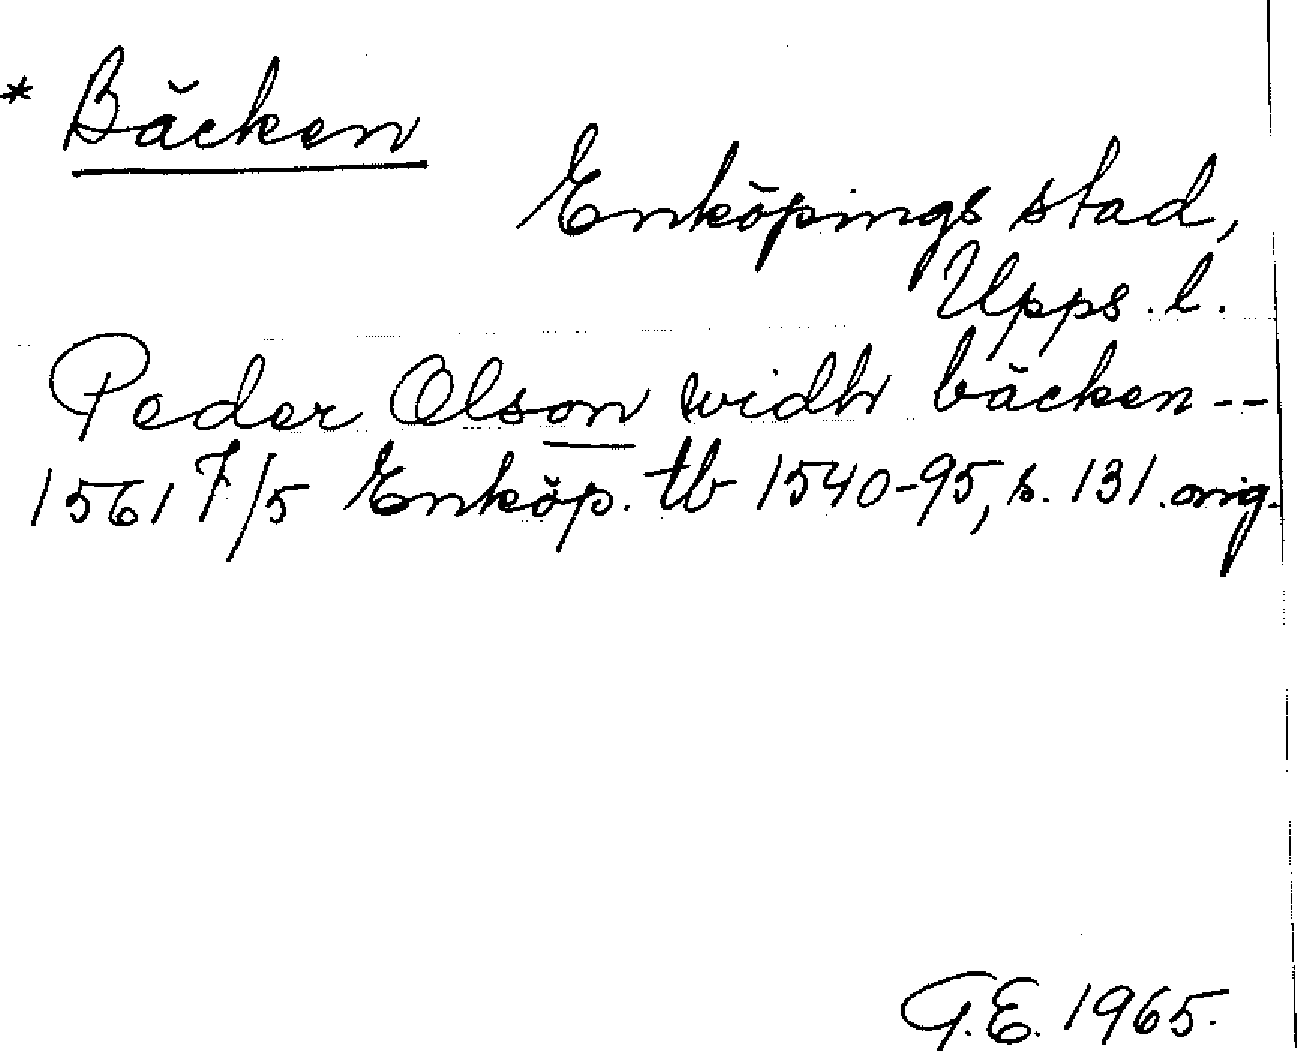 * Bäcken
Enköpings stad,
Upps. l.
Peder Olson widh bäcken --
1561 7/5 Enköp. tb 1540-95, s. 131 orig.
G.E. 1965.